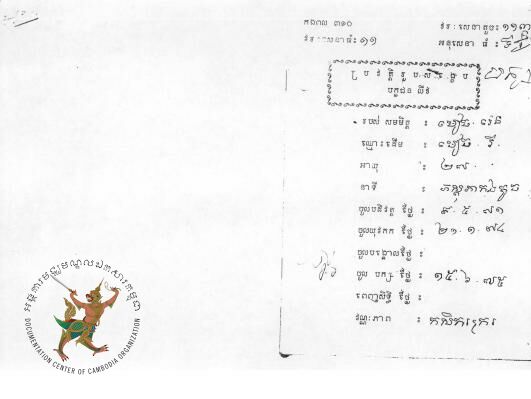 កងពល ៣១០
វរៈសេនាធំ: ១១
វរៈសេនាតូច: ១១៣
អនុសេនា ធំ :
ប្រវត្តិរូបសង្ខេប
បក្ខជន យីវ
របស់ សមមិត្ត : ហៀង
ឈ្មោះដើម : ហៀង រី
អាយុ : ២៧
នាទី :
ចូលបដិវត្ត ថ្ងៃ : ៩.៥.៧១
ចូលយុវកក ថ្ងៃ : ២១.១.៧៤
ចូលបង្គោលថ្ងៃ :
ចូល បក្ស ថ្ងៃ : ១៥.៦.៧៥
ពេញសិទ្ធិ ថ្ងៃ :
វណ្ណៈភាព : កសិករក្រ
អង្គការមជ្ឈមណ្ឌលឯកសារកម្ពុជា
DOCUMENTATION CENTER OF CAMBODIA ORGANIZATION